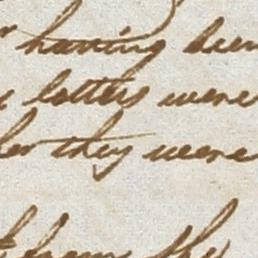 having been
letters were
they were
from the